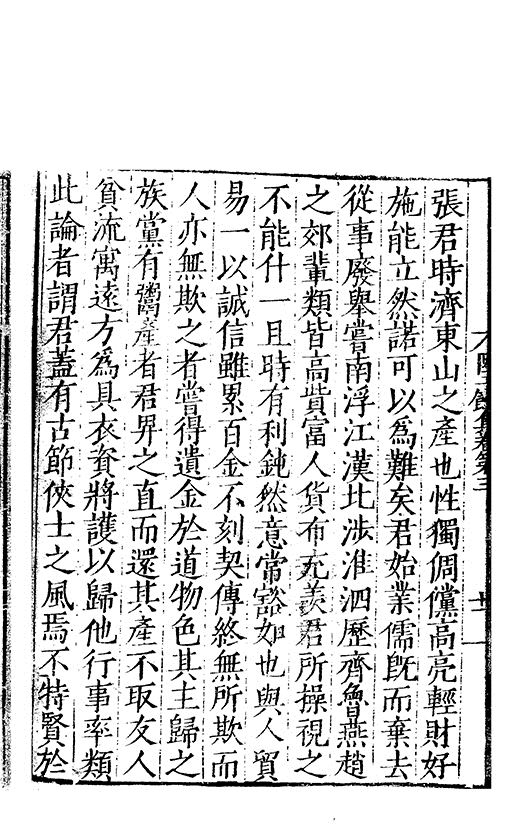 張君時濟東山之產也性獨倜儻高亮輕財好
施能立然諾可以爲難矣君始業儒既而棄去
從事廢舉嘗南浮江漢北涉淮泗歷齊魯燕趙
之郊輩類皆高貲富人貨布充羨君所操視之
不能什一且時有利鈍然意常豁如也與人貿
易一以誠信雖累百金不刻契傳終無所欺而
人亦無欺之者嘗得遺金於道物色其主歸之
族黨有鬻產者君畀之直而還其產不取友人
貧流寓遠方爲具衣資將護以歸他行事率類
此論者謂君蓋有古節俠士之風焉不特賢於
卷三